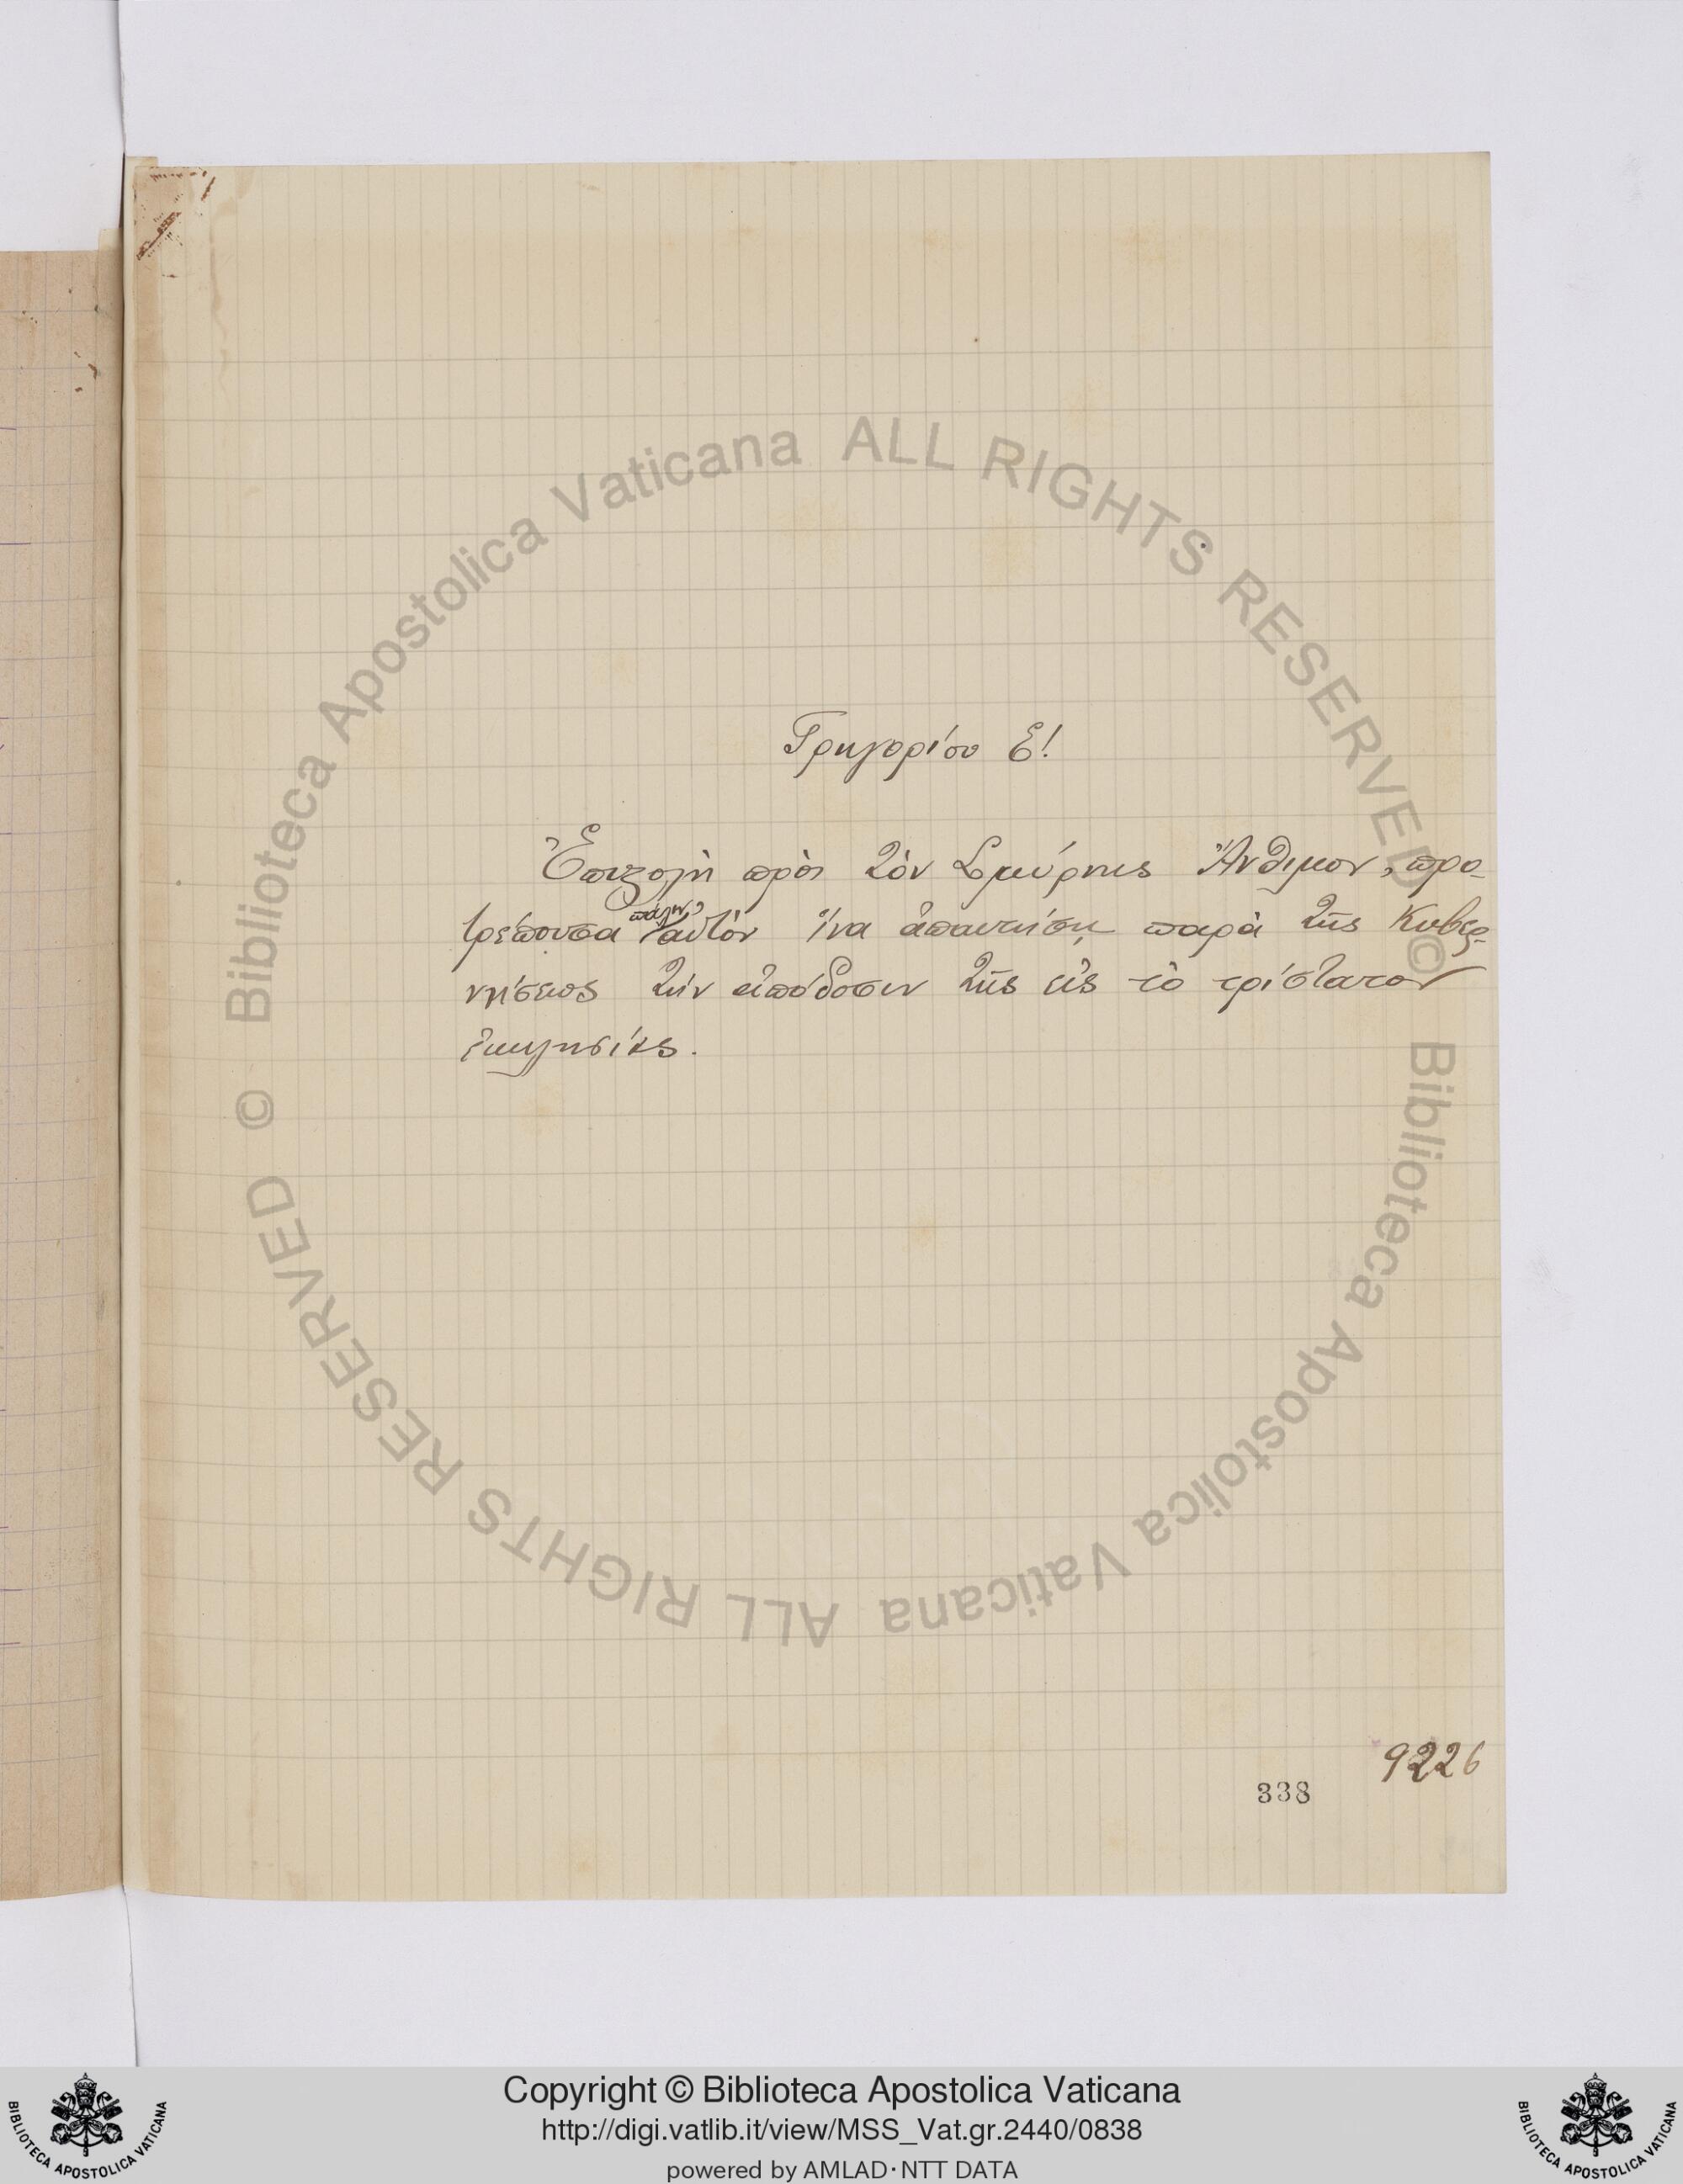 Γρηγορίου Ε!
Ἐπιστολὴ πρὸς τὸν Σμύρνης Ἄνθιμον, προ-
τρέπουσα πάλιν αὐτὸν ἵνα ἀπαιτήσῃ παρὰ τῆς Κυβερ-
νήσεως τὴν ἀπόδοσιν τῆς εἰς τὸ τρίστατον
ἐκκλησίας.
9226
338
© Biblioteca Apostolica Vaticana ALL RIGHTS RESERVED
© Biblioteca Apostolica Vaticana ALL RIGHTS RESERVED
Copyright © Biblioteca Apostolica Vaticana
http://digi.vatlib.it/view/MSS_Vat.gr.2440/0838
powered by AMLAD·NTT DATA
BIBLIOTECA APOSTOLICA VATICANA
BIBLIOTECA APOSTOLICA VATICANA